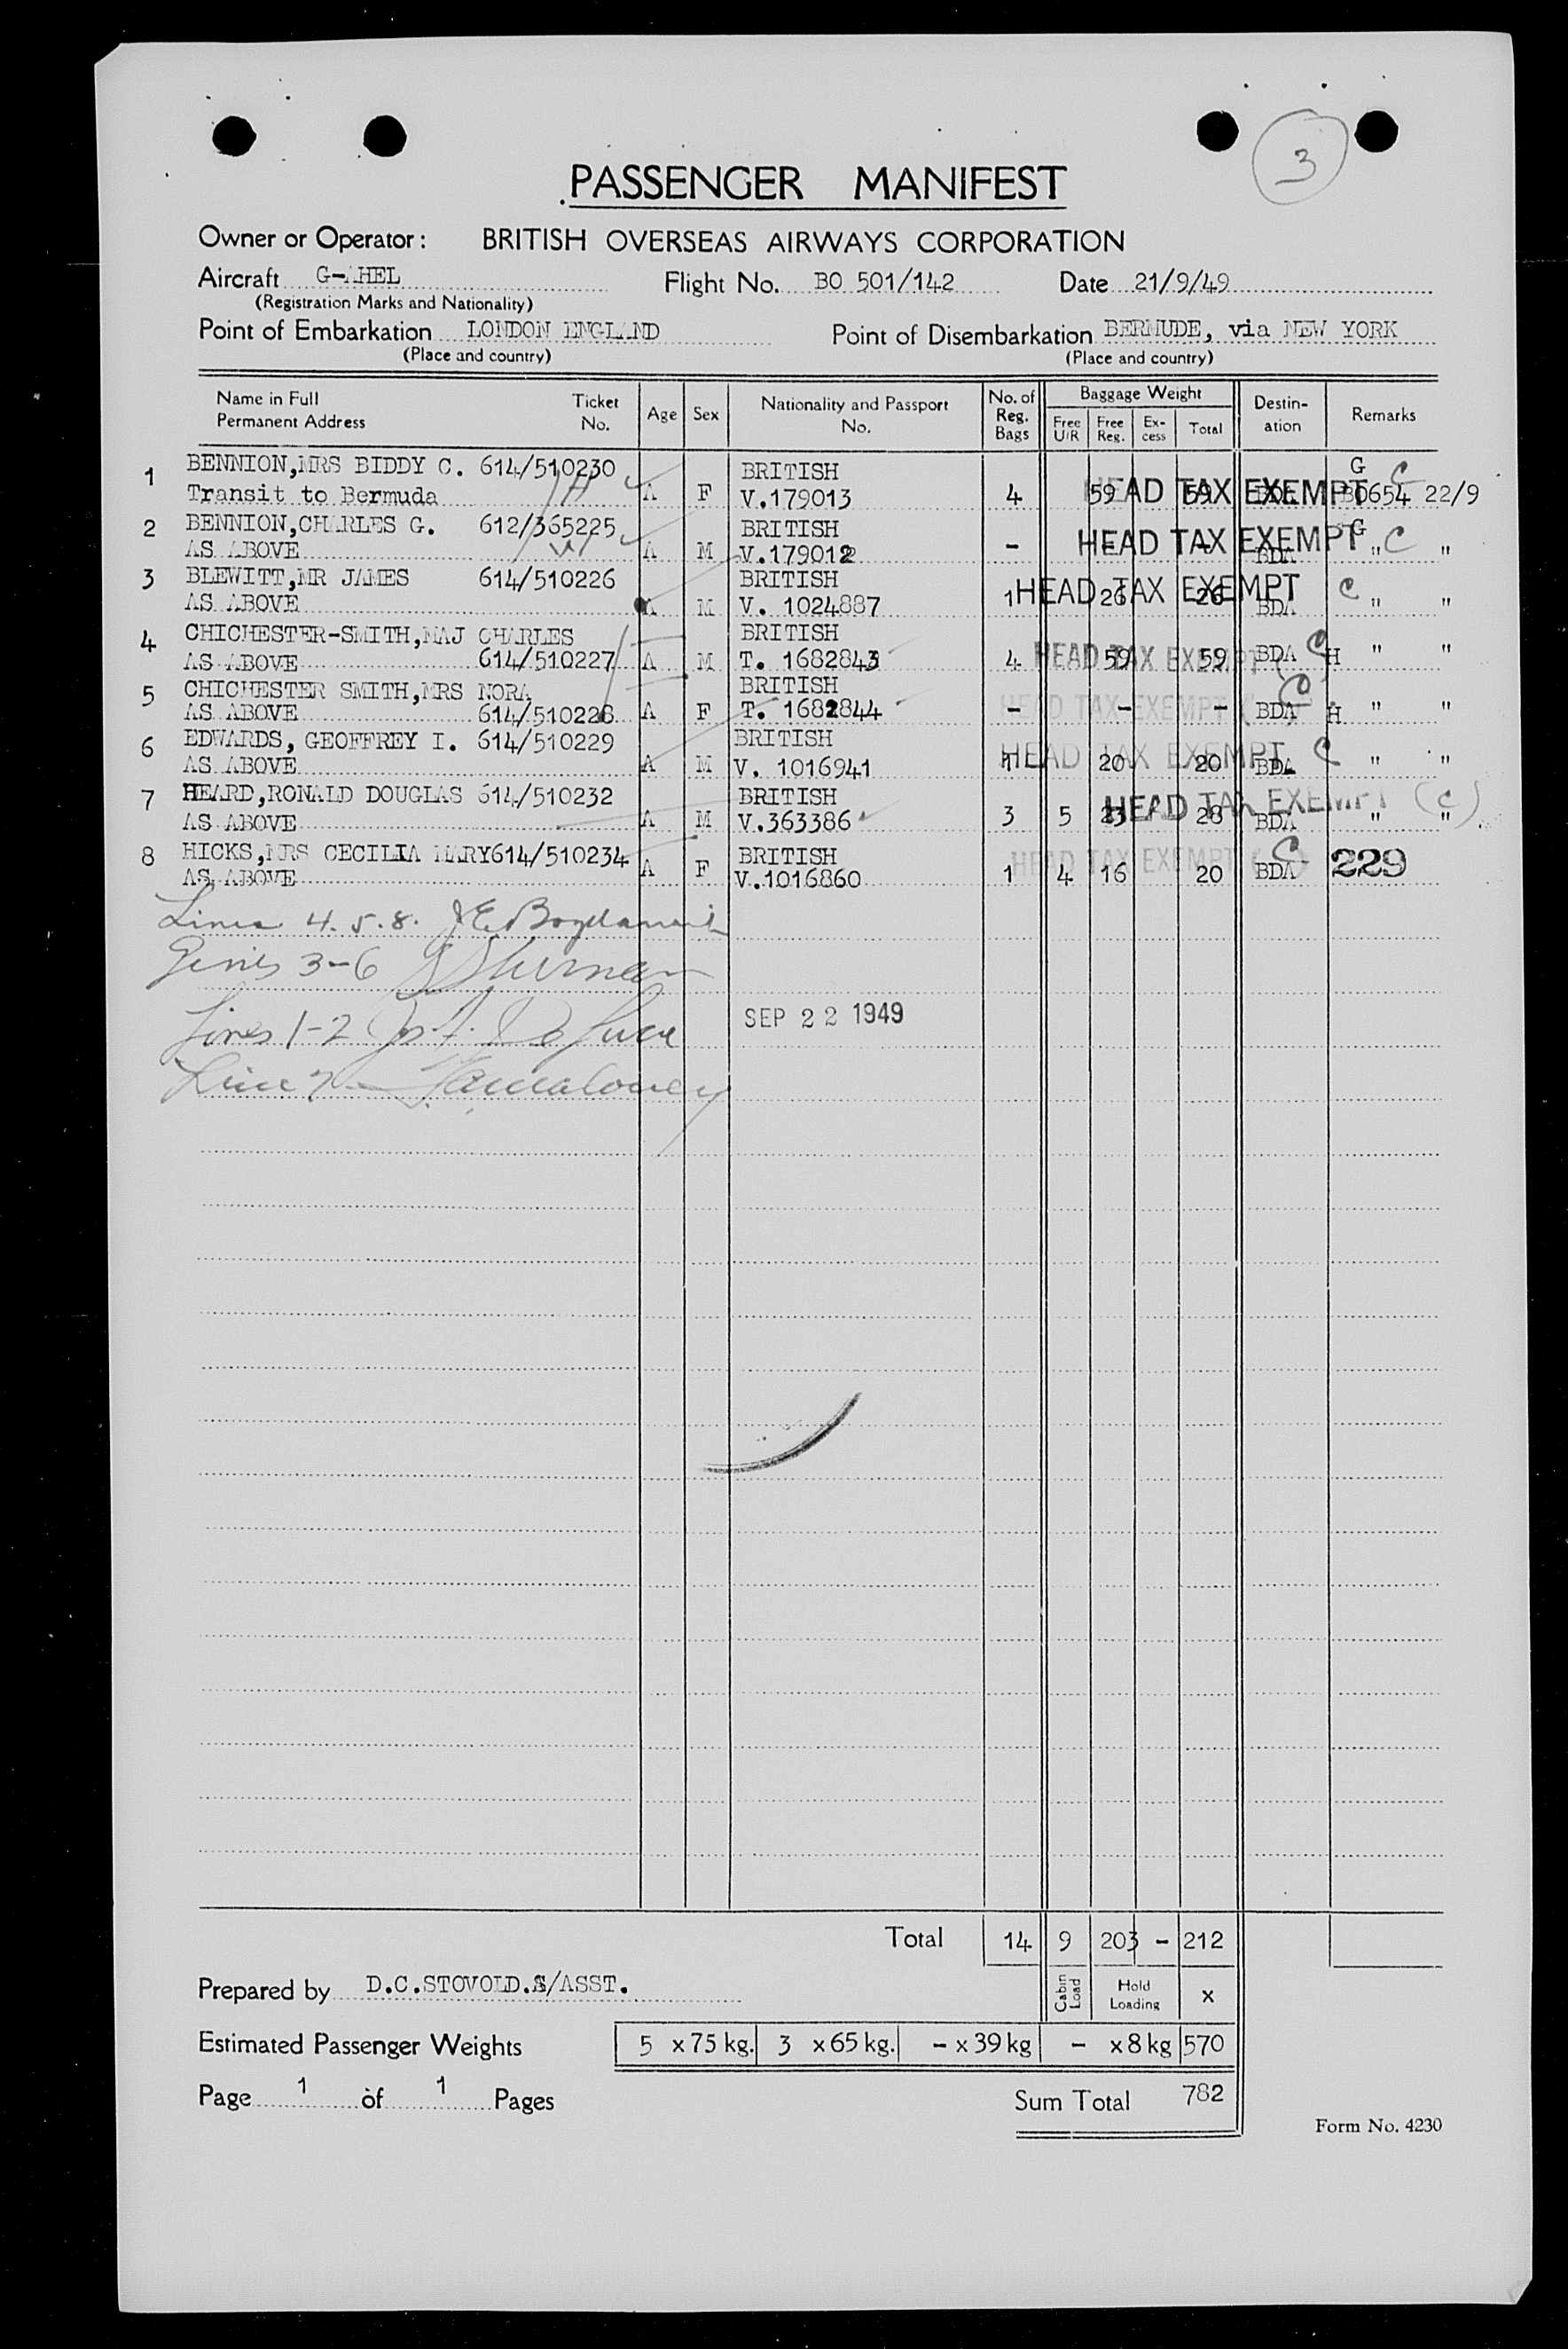 3
PASSENGER MANIFEST
Owner or Operator: BRITISH OVERSEAS AIRWAYS CORPORATION
Aircraft G-AHEL Flight No. BO 501/142 Date 21/9/49
(Registration Marks and Nationality)
Point of Embarkation LONDON ENGLAND Point of Disembarkation BERMUDE, via NEW YORK
(Place and country) (Place and country)
Name in Full Permanent Address Ticket No. Age Sex Nationality and Passport No. No. of Reg. Bags Baggage Weight Free U/R Free Reg. Ex-cess Total Destin-ation Remarks
1 BENNION,MRS BIDDY C. 614/510230 BRITISH G C
Transit to Bermuda A F V.179013 4 59 59 BDA HEAD TAX EXEMPT BO654 22/9
2 BENNION,CHARLES G. 612/365225 BRITISH G
AS ABOVE A M V.179012 - - - BDA HEAD TAX EXEMPT C " "
3 BLEWITT,MR JAMES 614/510226 BRITISH
AS ABOVE A M V. 1024887 1 26 26 BDA HEAD TAX EXEMPT C " "
4 CHICHESTER-SMITH,MAJ CHARLES BRITISH
AS ABOVE 614/510227 A M T. 1682843 4 59 59 BDA HEAD TAX EXEMPT C H " "
5 CHICHESTER SMITH,MRS NORA BRITISH
AS ABOVE 614/510228 A F T. 1682844 - - - BDA HEAD TAX EXEMPT C H " "
6 EDWARDS, GEOFFREY I. 614/510229 BRITISH
AS ABOVE A M V. 1016941 1 20 20 BDA HEAD TAX EXEMPT C " "
7 HEARD,RONALD DOUGLAS 614/510232 BRITISH
AS ABOVE A M V.363386 3 5 23 28 BDA HEAD TAX EXEMPT (C) " "
8 HICKS,MRS CECILIA MARY614/510234 BRITISH
AS ABOVE A F V.1016860 1 4 16 20 BDA HEAD TAX EXEMPT C 229
Lines 4.5.8.
Lines 3-6
Lines 1-2
SEP 22 1949
Line 7
Total 14 9 203 - 212
Prepared by D.C.STOVOLD.S/ASST. Cabin Load Hold Loading x
Estimated Passenger Weights 5 x 75 kg. 3 x 65 kg. - x 39 kg - x 8 kg 570
Page 1 of 1 Pages Sum Total 782
Form No. 4230